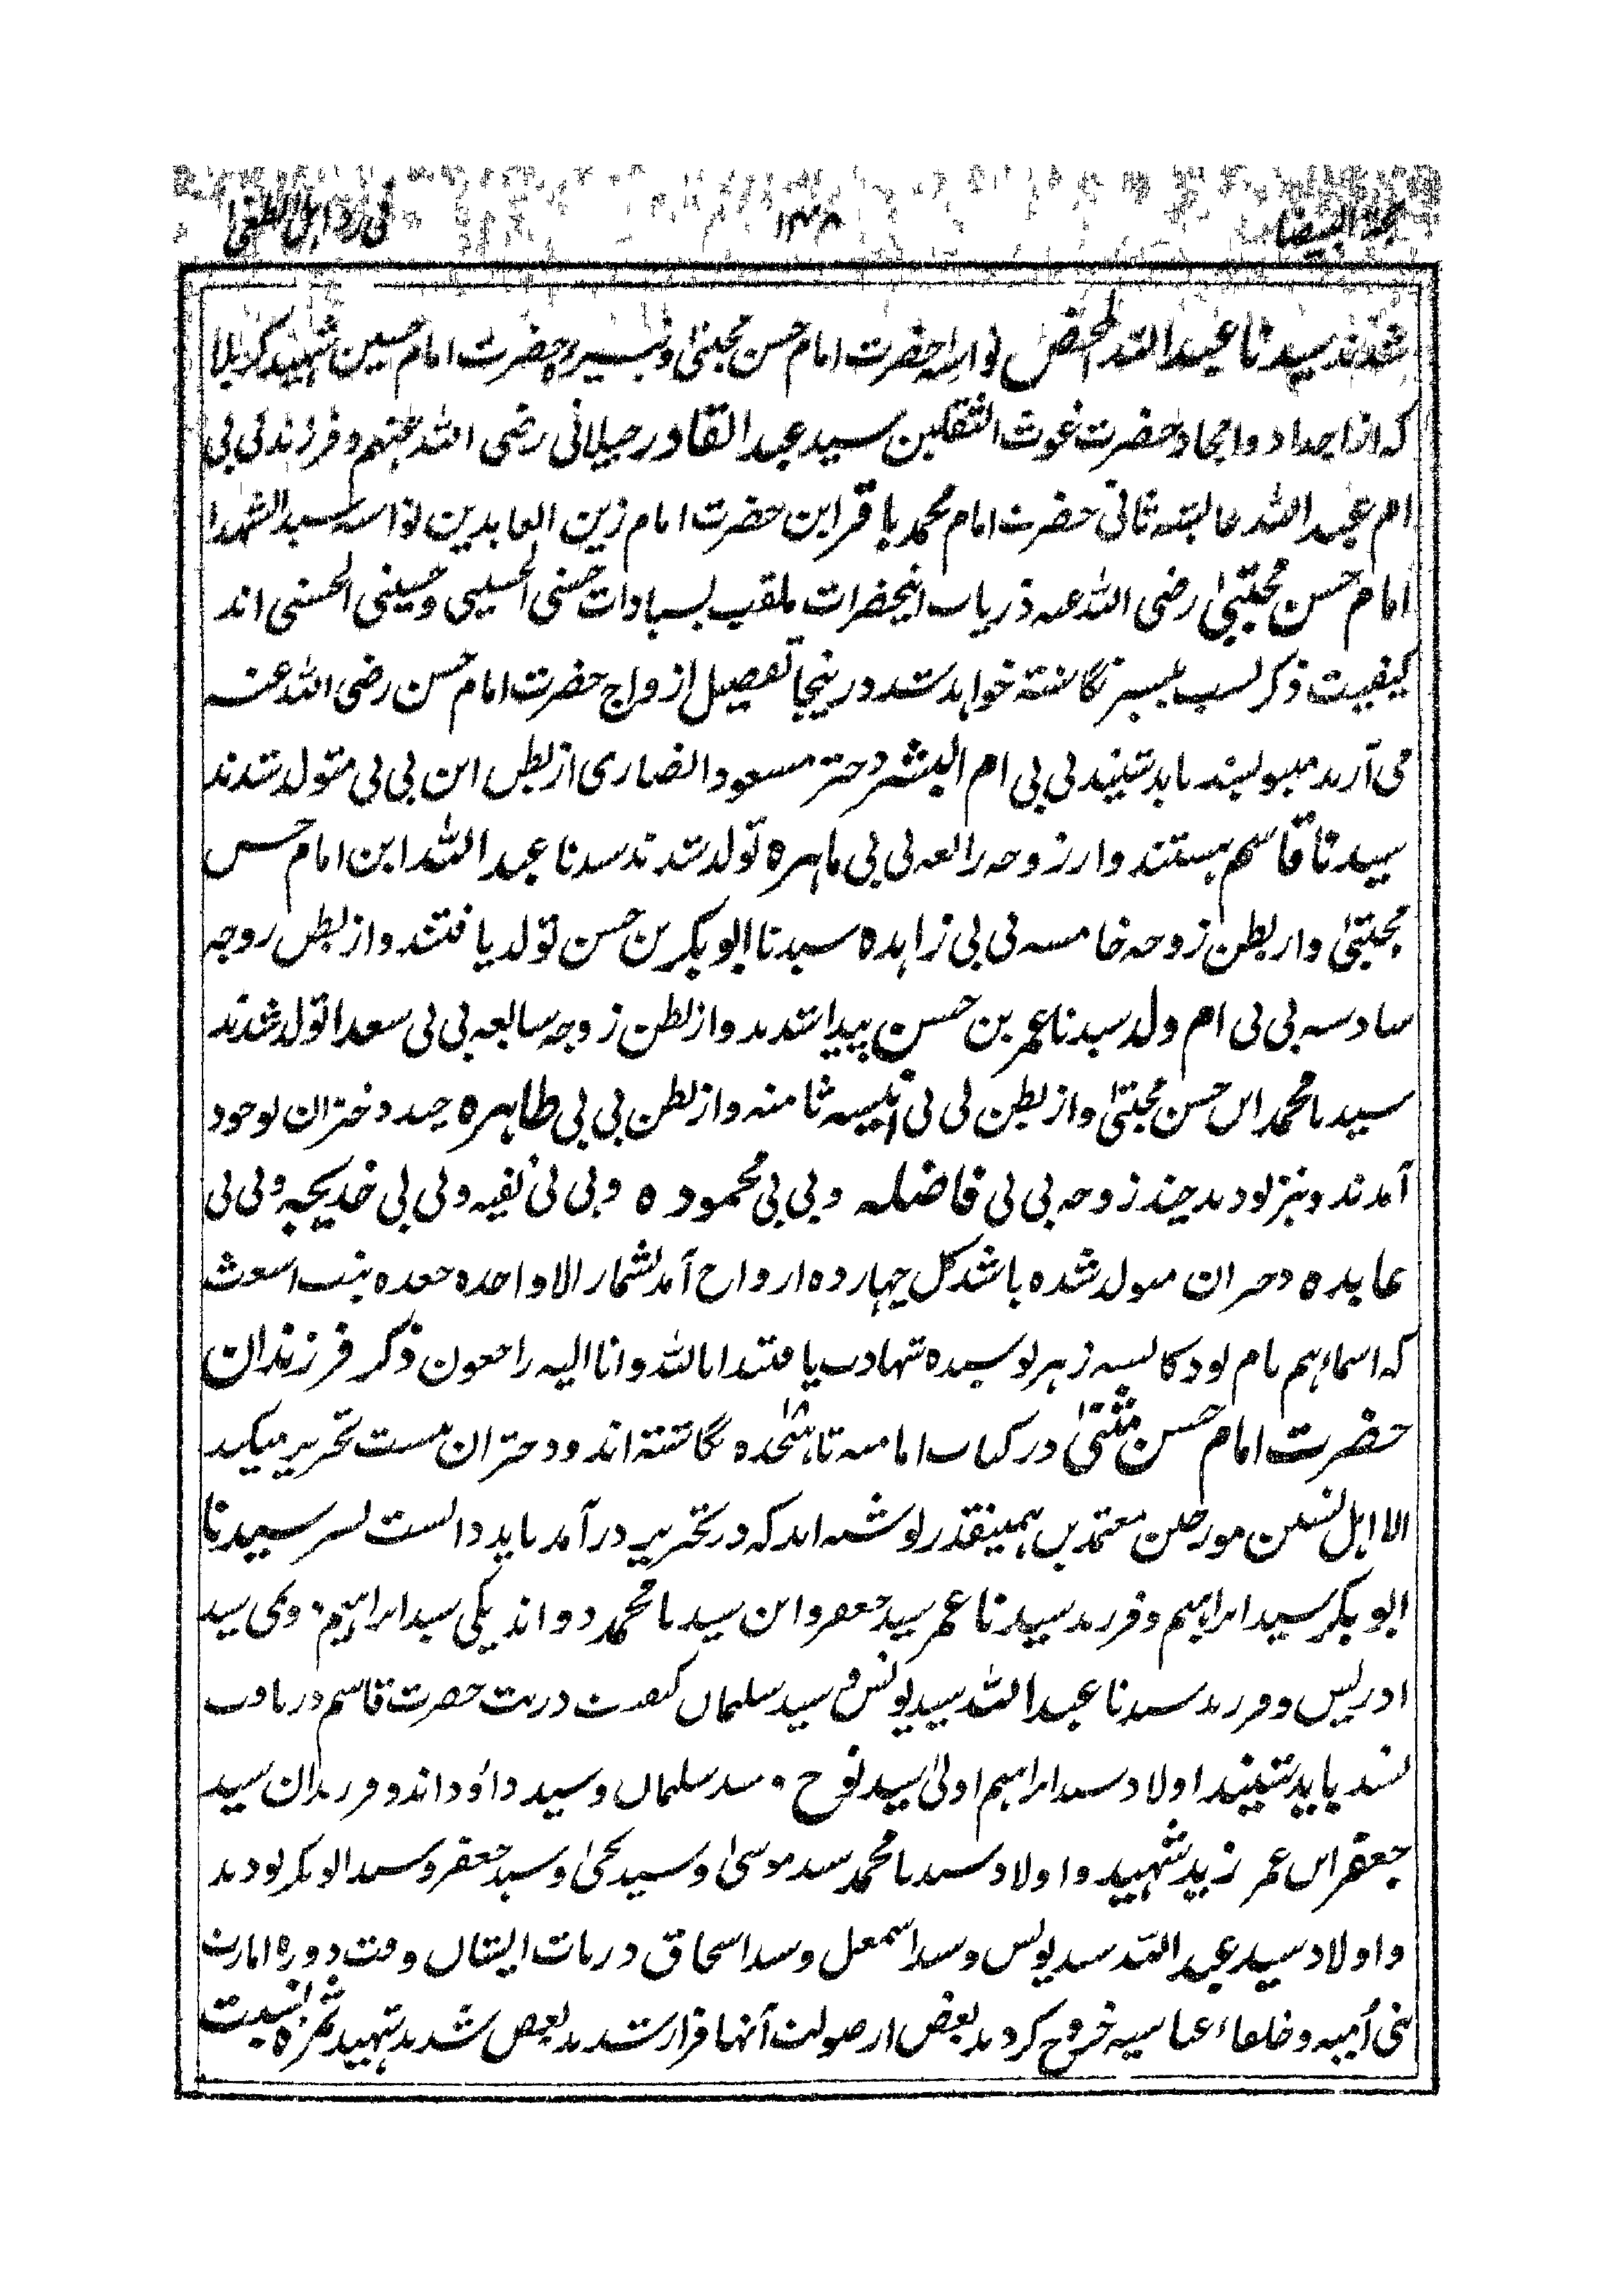 ۱۳۸
شدند سیدنا عبد الله المحض نواسه حضرت امام حسن مجتبیٰ و نبسیره حضرت امام حسین شهید کربلا
که از اجداد و امجاد حضرت غوث الثقلین سید عبد القادر جیلانی رضی الله عنهم و فرزند بی بی
ام عبد الله عایشه ثانی حضرت امام محمد باقر ابن حضرت امام زین العابدین نواسه سید الشهدا
امام حسن مجتبیٰ رضی الله عنه ذریات اینحضرات ملقب بسادات حسنی الحسینی و حسینی الحسنی اند
کیفیت ذکر نسب نگاشته خواهد شد درینجا تفصیل ازواج حضرت امام حسن رضی الله عنه
می آرند باید شنید بی بی ام البشر دختر مسعود انصاری از بطن این بی بی متولد شدند
سیدنا قاسم هستند و از زوجه رابعه بی بی ماهره تولد شدند سیدنا عبد الله ابن امام حسن
مجتبیٰ و از بطن زوجه خامسه بی بی زاهده سیدنا ابو بکر بن حسن تولد یافتند و از بطن زوجه
سادسه بی بی ام ولد سیدنا عمر بن حسن پیدا شدند و از بطن زوجه سابعه بی بی سعدا تولد شدند
سیدنا محمد ابن حسن مجتبیٰ و از بطن بی بی انیسه ثامنه و از بطن بی بی طاهره چند دختران بوجود
آمدند و نیز بودند چند زوجه بی بی فاضله و بی بی محموده و بی بی نفیه و بی بی خدیجه و بی بی
عابده دختران متولد شده باشد کل چهارده ازواج آمد بشمار الا واحده جعده بنت اسعث
که اسماء هم نام بود زهر نوسیده شهادت یافتند انا لله و انا الیه راجعون ذکر فرزندان
حضرت امام حسن مثنیٰ در کتاب امامیه تا هثجده ۱۸ نگاشته اند و دختران تحریر میکنید
الا اهل تسنن مورخین معتمدین همینقدر نوشته اند که در تحریر در آمد باید دانست پسر سیدنا
ابو بکر سید ابراهیم و فرزند سیدنا عمر سید جعفر و ابن سیدنا محمد دو اند یکی سید ابراهیم و یکی سید
ادریس و فرزند سیدنا عبد الله سید یونس و سید سلیمان کیفیت ذریت حضرت قاسم دریافت
نشد باید شنیند اولاد سید ابراهیم اولیٰ سید نوح و سید سلیمان و سید داؤد اند و فرزندان سید
جعفر ابن عمر زید شهید و اولاد سیدنا محمد سید موسیٰ و سید یحیٰ و سید جعفر و سید ابو بکر بودند
و اولاد سید عبد الله سید یونس و سید اسمعیل و سید اسحاق ذریات ایشان وقت دوره امارت
بنی اُمیه و خلفاء عباسیه خروج کردند بعض از صولت آنها فرار شدند بعض شدند شهید ثمره نسبت